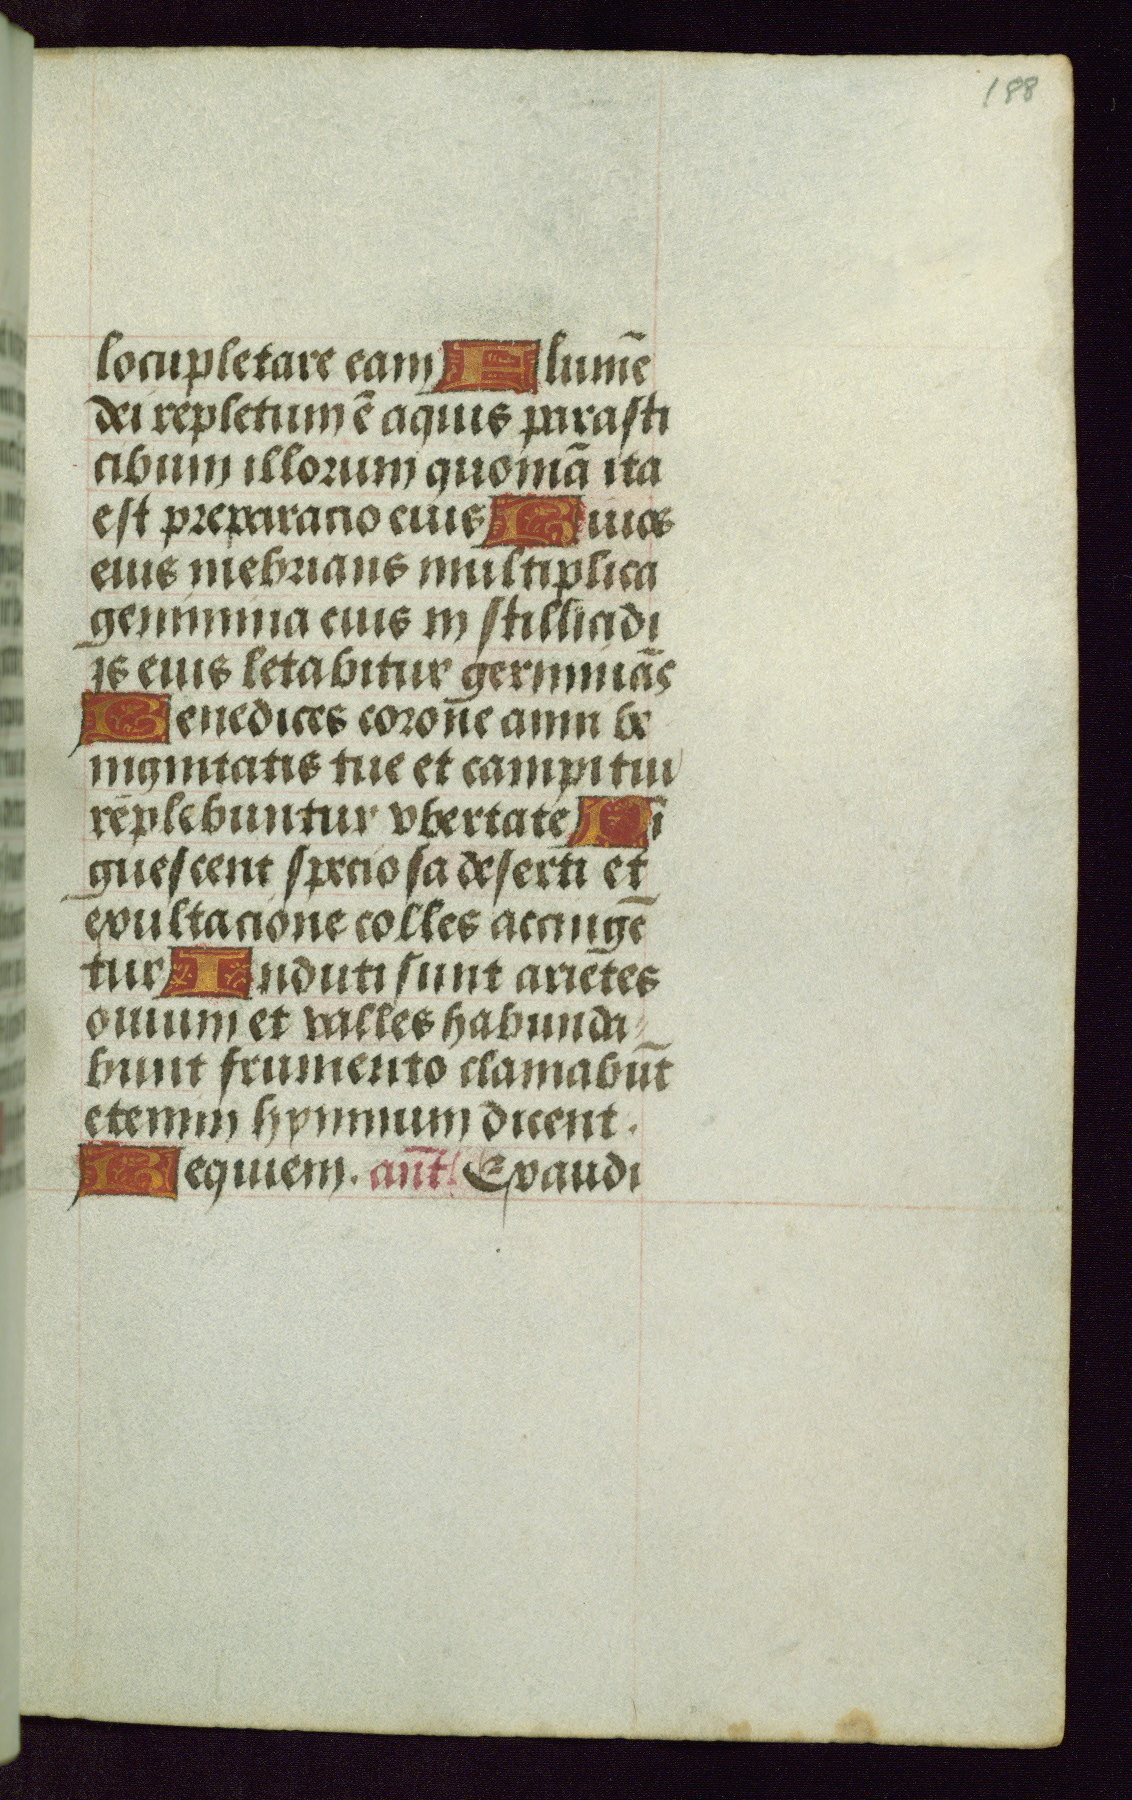 188
locupletare eam Flumē
dei repletum ē aquis parasti
cibum illorum quoniā ita
est preparacio eius Riuos
eius inebrians multiplica
genimina eius in stillicidi
is eius letabitur germinās
Benedices corone anni be
nignitatis tue et campi tui
replebuntur vbertate Pī
guescent speciosa deserti et
exultacione colles accingē
tur Induti sunt arietes
ouium et valles habunda
bunt frumento clamabūt
etenim hymnum dicent.
Requiem. ant̄. Exaudi